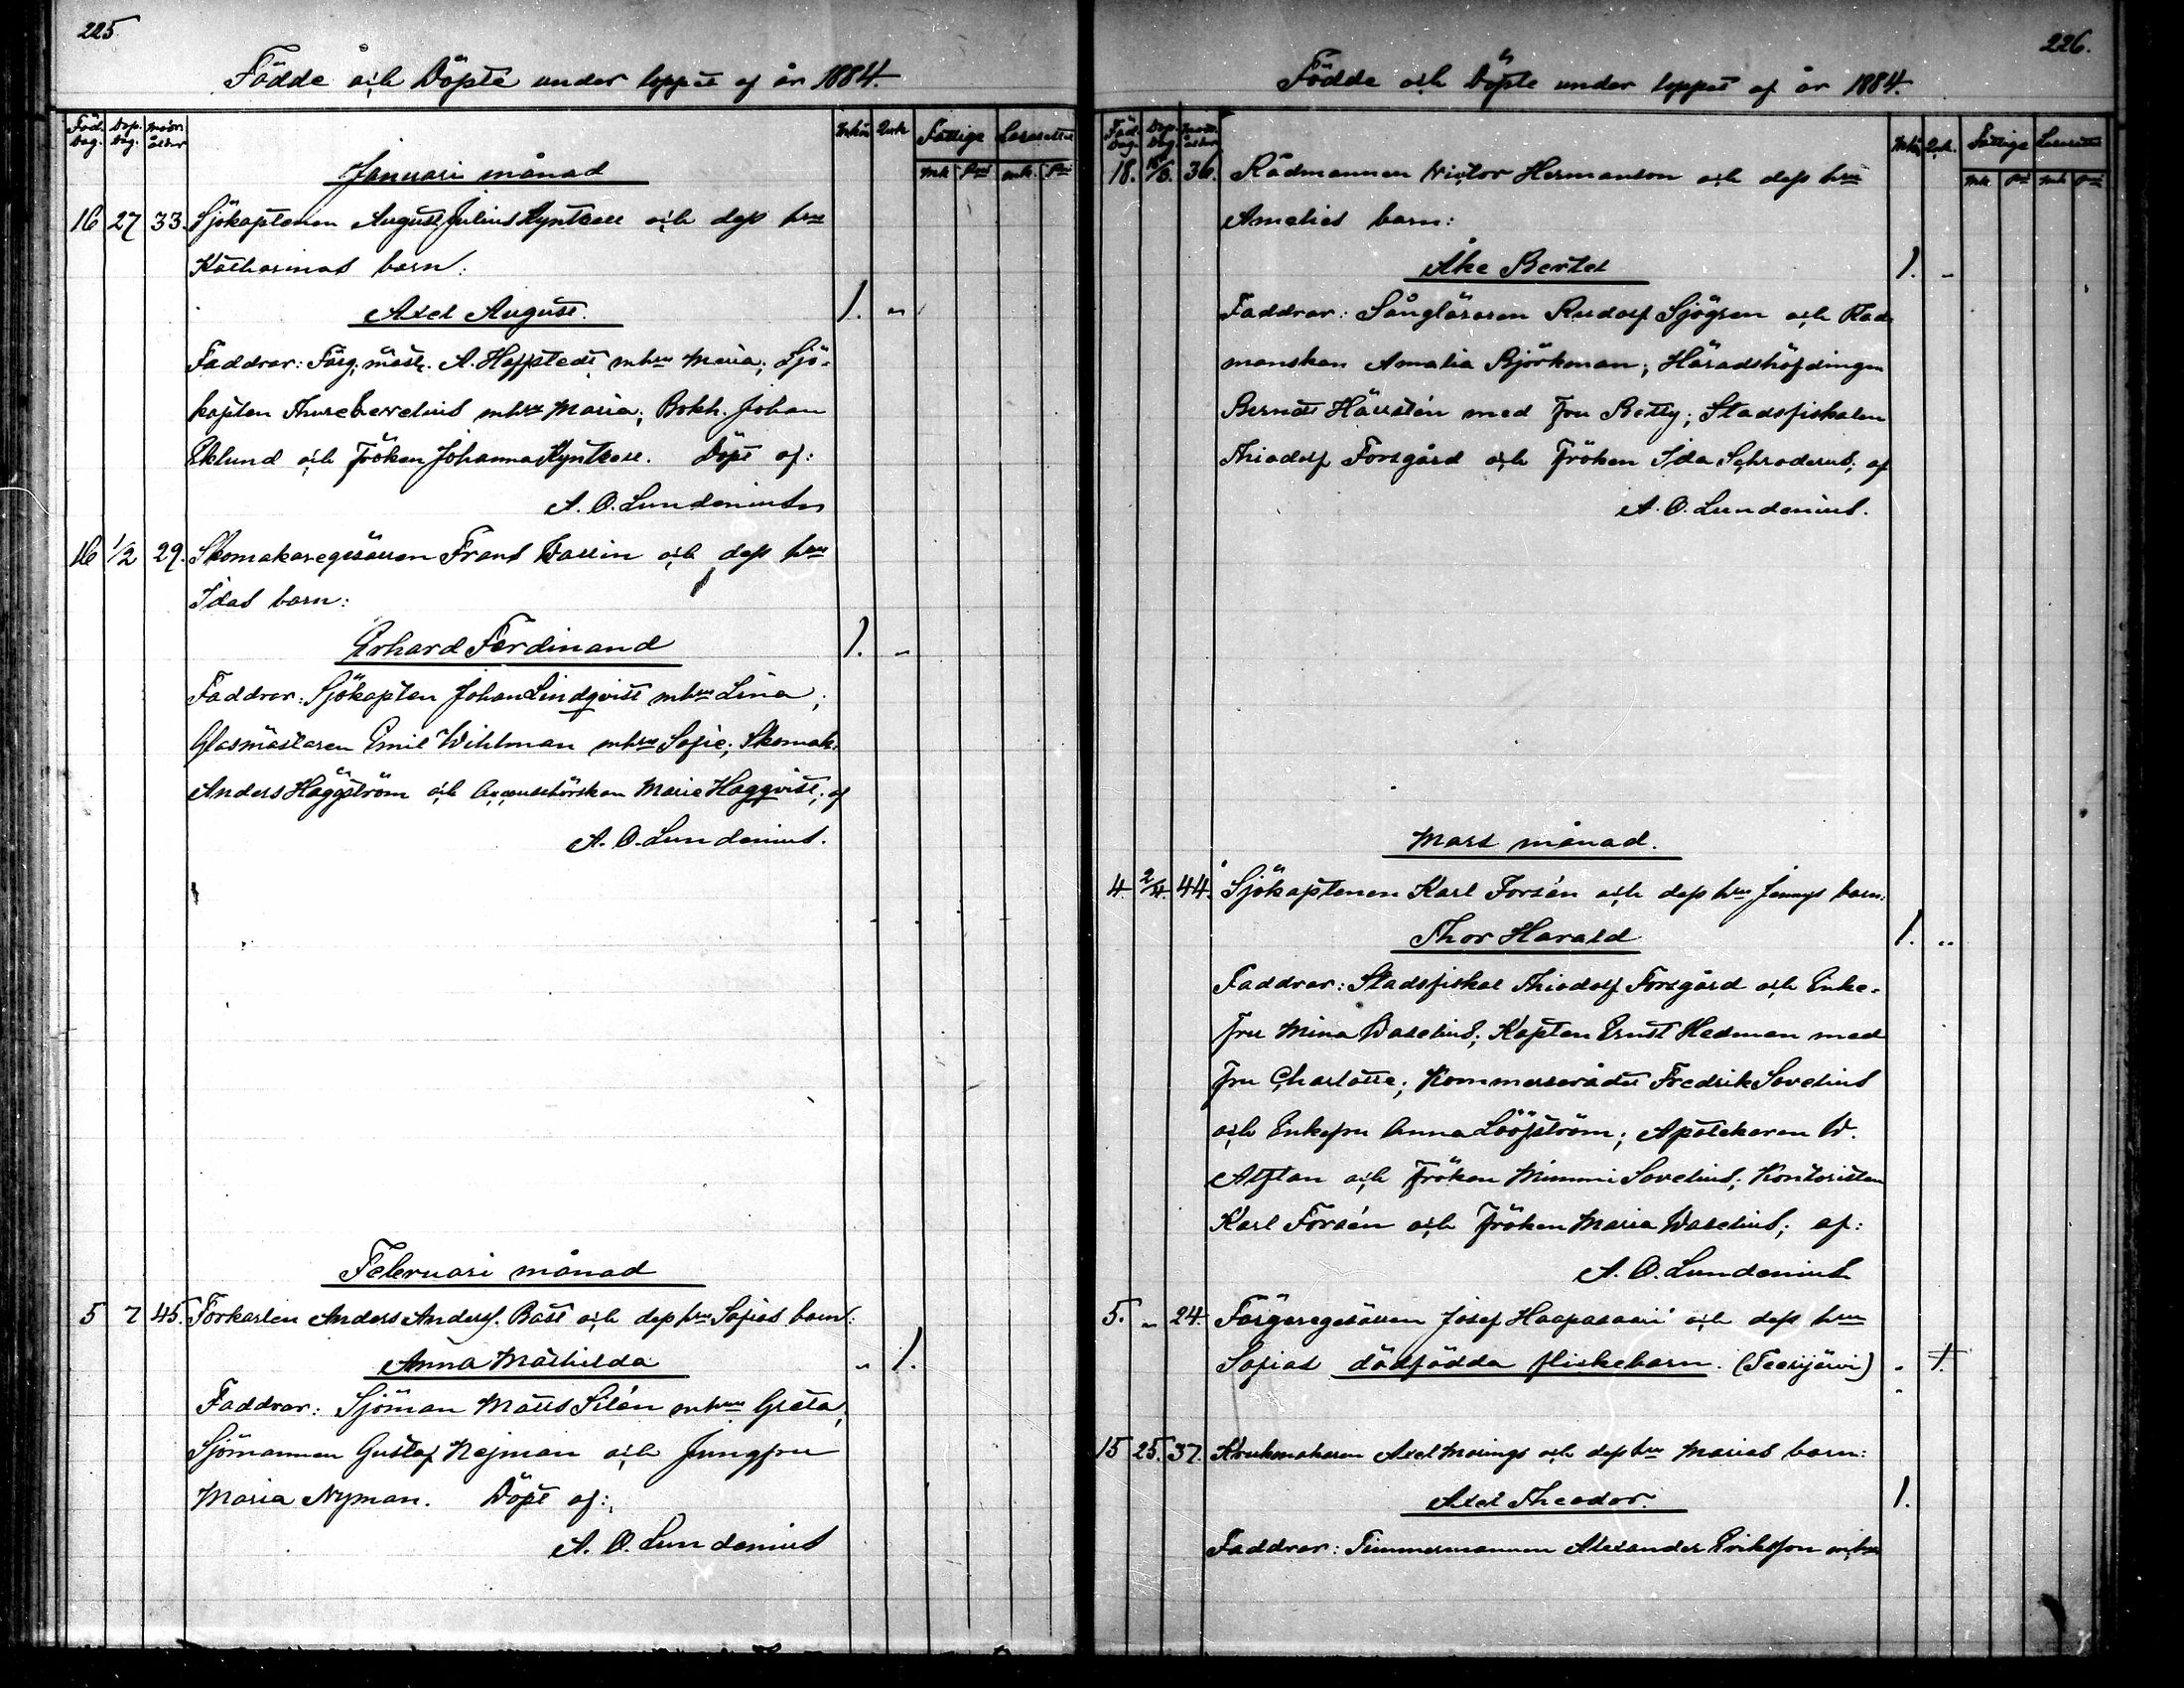 225
Födde och Döpte under loppet af år 1884.
Föd. dag. Dop. dag. Modr. ålder Mkön Qvk Fattige Lasarettet
mk p:i mk p:i
Januari månad
16 27 33. Sjökaptenen August Julius Kyntzell och dess hru
Katharinas barn:
Axel August. 1. "
Faddrar: Färg. mäst. A. Hoffstedt mhru Maria; Sjö-
kapten Thure mhru Maria; Bokh. Johan
Eklund och Fröken Johanna Kyntzell. Döpt af:
A. O. Lundenius
16 1/2 29. Skomakaregesällen Frans Wallin och dess hru
Idas barn:
Erhard Ferdinand 1. "
Faddrar: Sjökapten Johan Lindqvist mhru Lina;
Glasmästaren Emil Wihlman mhru Sofie; Skomak.
Anders Häggström och Maria Hagqvist; af
A. O. Lundenius.
Februari månad
5 7 45. Forkarlen Anders Anderss. Bast och dess hru Sofias barn:
Anna Mathilda " 1.
Faddrar: Sjöman Matts Silén mhru Greta;
Sjömannen Gustaf Nejman och Jungfru
Maria Nyman. Döpt af:
A. O. Lundenius
226.
Födde och Döpte under loppet af år 1884.
Föd. dag. Dop. dag. Modr. ålder Mkön Qvk. Fattige Lasarett
mk p:i mk p:i
18. 36. Rådmannen Victor Hermanson och dess hru
Amelies barn:
Åke Bertel 1. "
Faddrar: Sångläraren Rudolf Sjögren och Råd-
manskan Amalia Björkman; Häradshöfdingen
Berndt Hällstén med fru Betty; Stadsfiskalen
Thiodolf Forsgård och Fröken Ida Schroderus; af
A. O. Lundenius.
Mars månad.
4. 2/4. 44. Sjökaptenen Karl Forsén och dess hru Jennys barn:
Thor Harald 1. "
Faddrar: Stadsfiskal Thiodolf Forsgård och Enke-
fru Mina Waselius; Kapten Ernst Hedman med
fru Charlotte; Kommerserådet Fredrik Sovelius
och Enkefru Anna Lööfström; Apotekaren W.
Alftan och Fröken Mimmi Sovelius; Kontoristen
Karl Forsén och Fröken Maria Waselius; af:
A. O. Lundenius
5. " 24. Färgaregesällen Josef Haapasaari och dess hru
Sofias dödfödda flickebarn. (Teerijärvi) " 1.
15 25. 37. Krukmakaren Axel Morings och dess hru Marias barn:
Axel Theodor. 1.
Faddrar: Timmermannen Alexander Eriksson mhru